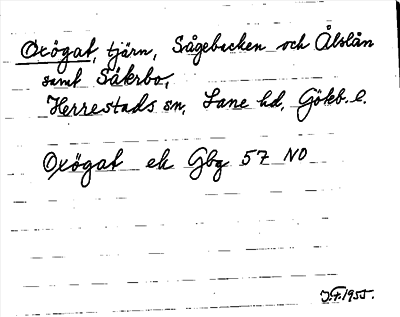 Oxögat, tjärn, Sågebacken och Ålslån
samt Säkrbo,
Herrestads sn, Lane hd, Gökb. l.
Oxögat ek Gbg 57 NO
J.F. 1955.